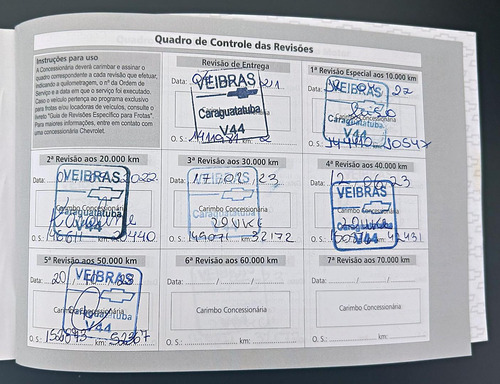 Quadro de Controle das Revisões
Instruções para uso
A Concessionária deverá carimbar e assinar o
quadro correspondente a cada revisão que efetuar,
indicando a quilometragem, o nº da Ordem de
Serviço e a data em que o serviço foi executado.
Caso o veículo pertença ao programa exclusivo
para frotas e/ou locadoras de veículos, consulte o
livreto "Guia de Revisões Específico para Frotas".
Para maiores informações, entre em contato com
uma concessionária Chevrolet.
Revisão de Entrega
Data: 21
VEIBRAS
Caraguatatuba
V44
O. S.:
1ª Revisão Especial aos 10.000 km
Data:
Caraguatatuba
V44
O. S.: 10547
2ª Revisão aos 20.000 km
Data: VEIBRAS
Carimbo Concessionária
Caraguatatuba
V44
O. S.: km: 20440
3ª Revisão aos 30.000 km
Data: 17 / 02 / 23
Carimbo Concessionária
Caraguatatuba
O. S.: 149071 km: 32172
4ª Revisão aos 40.000 km
Data: 23
VEIBRAS
Carimbo Concessionária
Caraguatatuba
V44
O. S.: 42431
5ª Revisão aos 50.000 km
Data: 20 / 10 / 23
VEIBRAS
Caraguatatuba
V44
O. S.: 152893 km: 52367
6ª Revisão aos 60.000 km
Data: / /
Carimbo Concessionária
O. S.: km:
7ª Revisão aos 70.000 km
Data: / /
Carimbo Concessionária
O. S.: km: